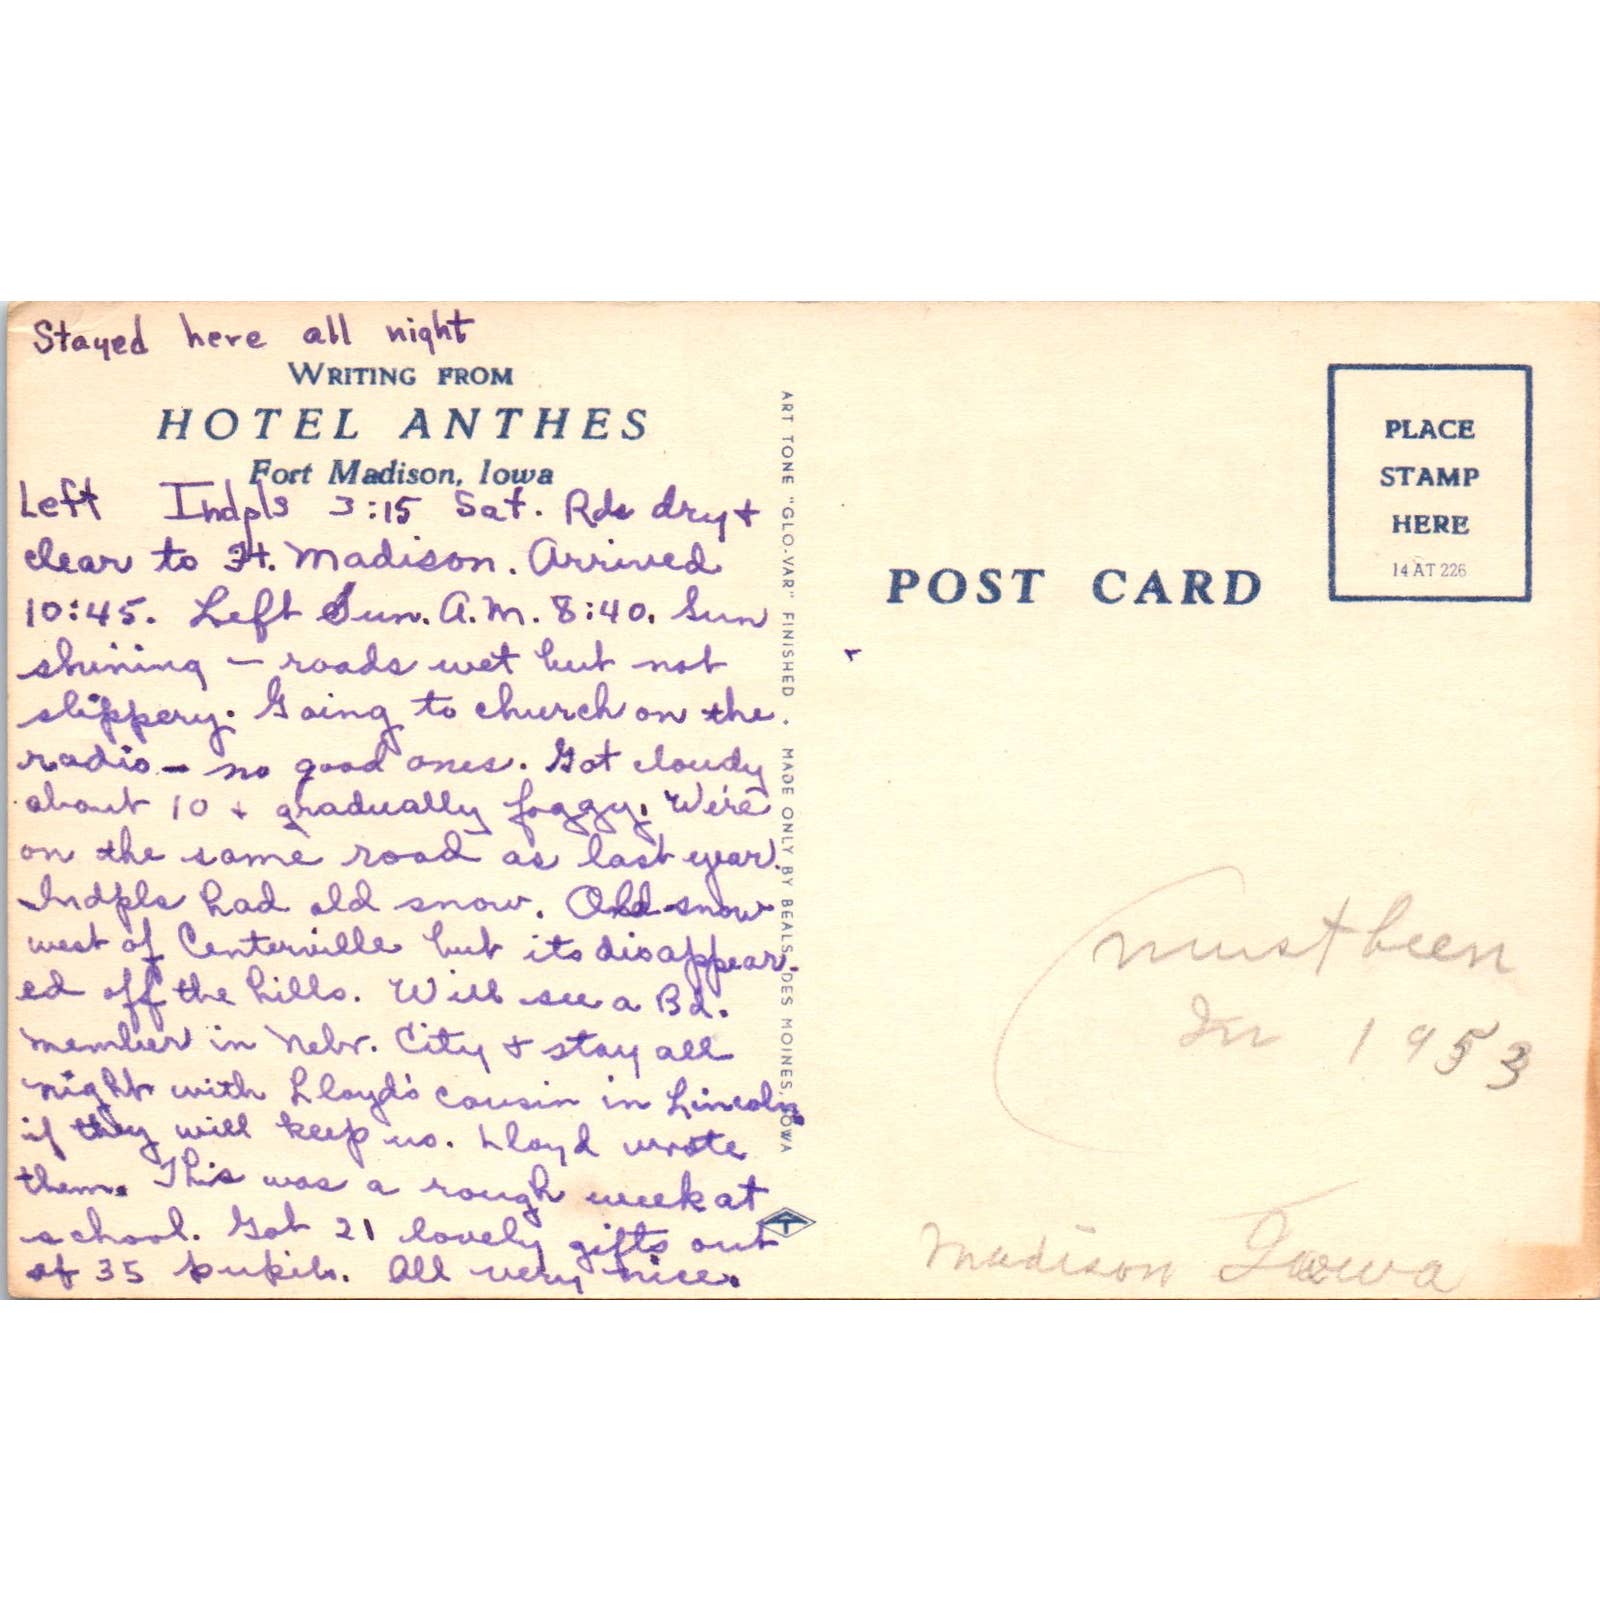 Stayed here all night
WRITING FROM
HOTEL ANTHES
Fort Madison, Iowa
Left Indpls 3:15 Sat. Rds dry +
clear to Ft. Madison. Arrived
10:45. Left Sun. A.M. 8:40. Sun
shining — roads wet but not
slippery. Going to church on the
radio — no good ones. Got cloudy
about 10 + gradually foggy. We're
on the same road as last year.
Indpls had old snow. Old snow
west of Centerville but its disappear-
ed off the hills. Will see a Bd.
member in Nebr. City + stay all
night with Lloyd's cousin in Lincoln
if they will keep us. Lloyd wrote
them. This was a rough week at
school. Got 21 lovely gifts out
of 35 pupils. All very nice.
ART TONE "GLO-VAR" FINISHED. MADE ONLY BY BEALS, DES MOINES, IOWA
POST CARD
PLACE
STAMP
HERE
14 AT 226
(must been
In 1953
Madison Iowa